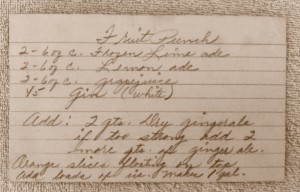 Fruit Punch
2-6oz c. Frozen Lime ade
2-6oz c. Lemon ade
2-6oz c. grapejuice
Gin (white)
Add: 2 qts. Dry gingerale
if too strong add 2
more qts. of ginger ale.
Orange slices floating on top
Add loads of ice. Makes gal.